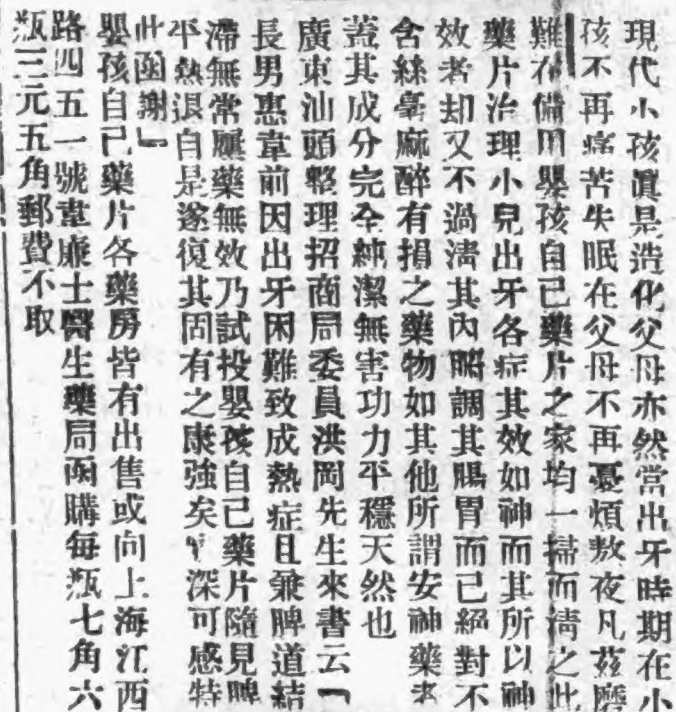 現代小孩眞是造化父母亦然當出牙時期在小
孩不再痛苦失眠在父母不再憂煩熬夜凡茲磨
難在備用嬰孩自己藥片之家均一掃而淸之此
藥片治理小兒出牙各症其效如神而其所以神
效者却又不過淸其內部調其腸胃而已絕對不
含絲毫麻醉有損之藥物如其他所謂安神藥者
蓋其成分完全純潔無害功力平穩天然也
廣東汕頭整理招商局委員洪岡先生來書云「
長男惠韋前因出牙困難致成熱症且兼脾道結
滯無常屢藥無效乃試投嬰孩自己藥片隨見脾
平熱退自是遂復其固有之康強矣 深可感特
此函謝」
嬰孩自己藥片各藥房皆有出售或向上海江西
路四五一號韋廉士醫生藥局函購每瓶七角六
瓶三元五角郵費不取